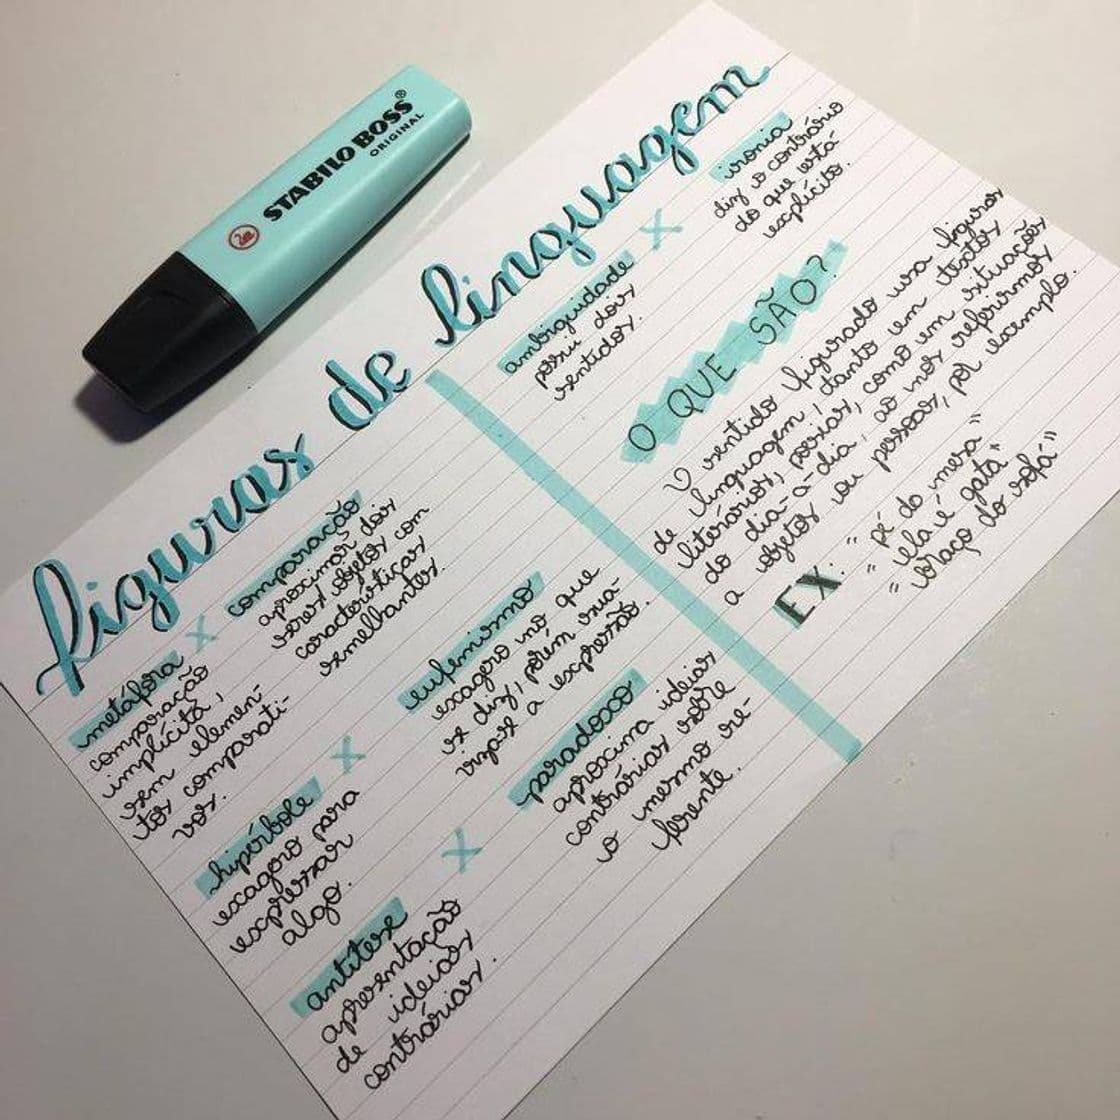 STABILO BOSS®
ORIGINAL
figuras de linguagem
metáfora
comparação
implícita,
sem elemen-
tos comparati-
vos.
x
comparação
aproximar dois
seres objetos com
características
semelhantes.
hipérbole
exagero para
expressar
algo.
x
eufemismo
exagero no que
se diz, porém sua-
vizase a expressão.
antítese
apresentação
de ideias
contrárias.
x
paradoxo
aproxima ideias
contrárias sobre
o mesmo re-
ferente.
ambiguidade
possui dois
sentidos.
x
ironia
diz o contrário
do que está
explícito.
O QUE SÃO?
O sentido figurado usa figuras
de linguagem, tanto em textos
literários, poesias, como em situações
do dia-a-dia, ao nos referirmos
a objetos ou pessoas, por exemplo.
EX: "pé da mesa"
"ela é gata"
"braço do sofá"